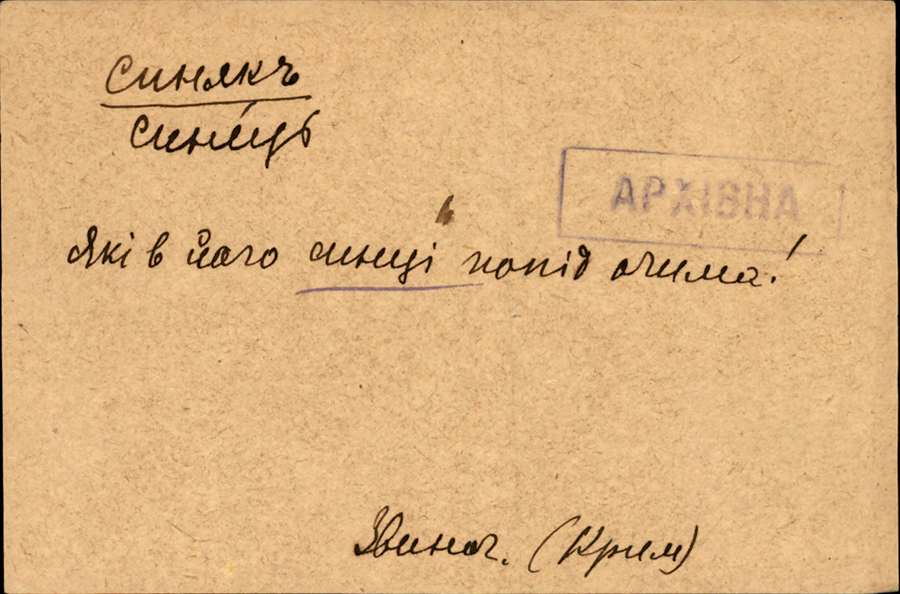 синякъ
сине́ць
АРХІВНА
Які в його синці попід очима!
Звиног. (Крим)